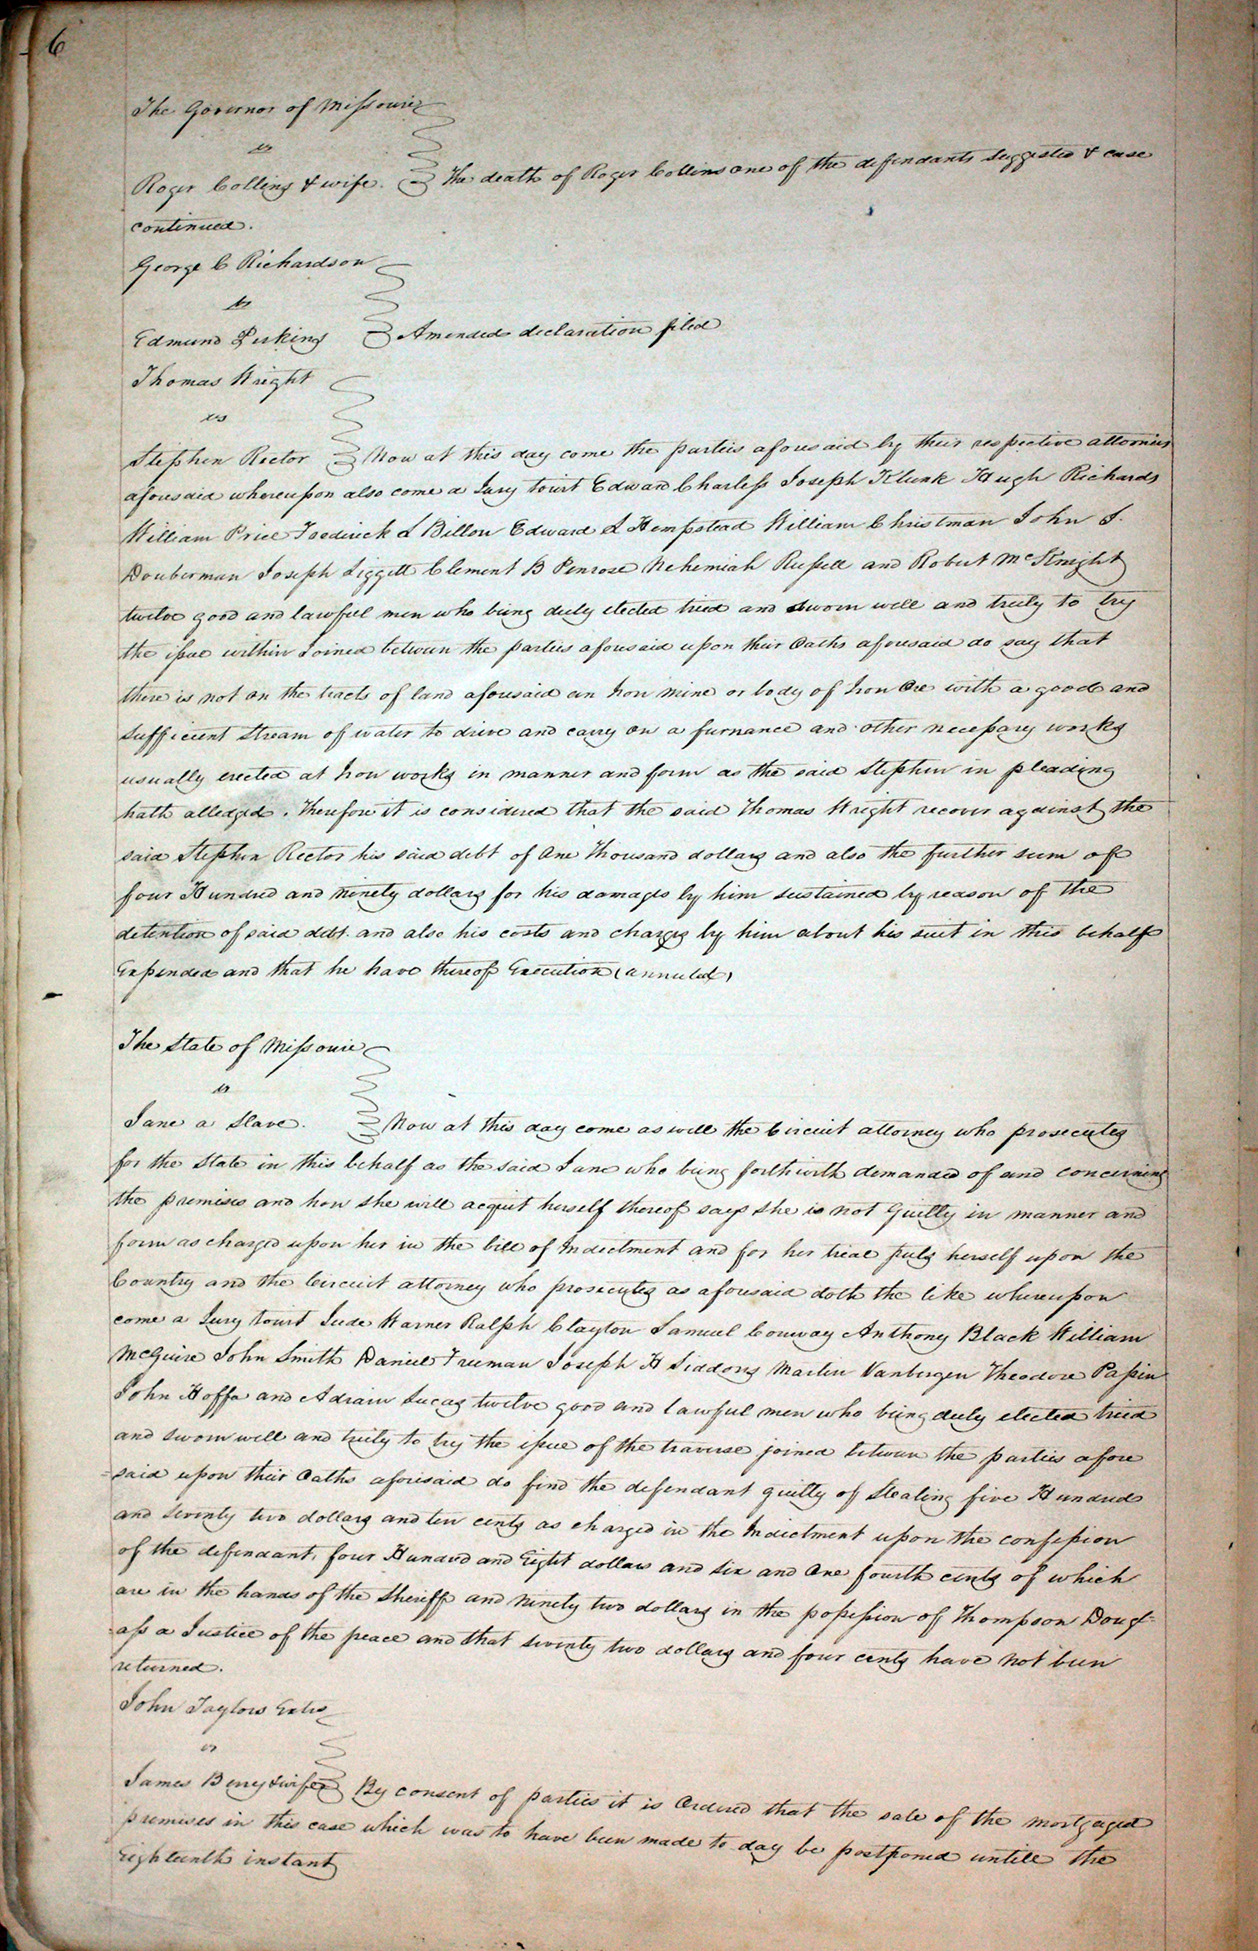 6
The Governor of Missouri
vs
Roger Collins & wife. The death of Roger Collins one of the defendants suggested & case
continued.
George C Richardson
vs
Edmund Perkins Amended declaration filed
Thomas Wright
vs
Stephen Rector Now at this day come the parties aforesaid by their respective attornies
aforesaid whereupon also come a Jury towit Edward Charless Joseph Klunk Hugh Richards
William Price Frederick L Billon Edward S Hempstead William Christman John S.
Douberman Joseph Liggett Clement B Penrose Nehemiah Russell and Robert McKnight
twelve good and lawful men who being duly elected tried and sworn well and truly to try
the issue within Joined between the parties aforesaid upon their Oaths aforesaid do say that
there is not on the tracts of land aforesaid an Iron mine or body of Iron Ore with a good and
sufficient Stream of water to drive and carry on a furnance and other necessary works
usually erected at Iron works in manner and form as the said Stephen in pleading
hath alledged. Therefore it is considered that the said Thomas Wright recover against the
said Stephen Rector his said debt of One Thousand dollars and also the further sum of
four Hundred and Ninety dollars for his damages by him sustained by reason of the
detention of said debt. and also his costs and charges by him about his suit in this behalf
Expended and that he have thereof Execution (annuled)
The State of Missouri
vs
Jane a Slave. Now at this day come as well the Circuit attorney who prosecutes
for the State in this behalf as the said Jane who being forthwith demanded of and concerning
the premises and how she will acquit herself thereof says she is not Guilty in manner and
form as charged upon her in the bill of Indictment and for her trial puts herself upon the
Country and the Circuit attorney who prosecutes as aforesaid doth the like whereupon
come a Jury towit Jude Warner Ralph Clayton Samuel Conway Anthony Black William
McGuire John Smith Daniel Freeman Joseph H Siddons Martin Vanbergen Theodore Papin
John Hoffa and Adrian Lucas twelve good and lawful men who being duly elected tried
and sworn well and truly to try the issue of the traverse joined between the parties afore
=said upon their Oaths aforesaid do find the defendant guilty of Stealing five Hundred
and seventy two dollars and ten cents as charged in the Indictment upon the confession
of the defendant, four Hundred and Eight dollars and six and One fourth cents of which
are in the hands of the Sheriff and Ninety two dollars in the possession of Thompson Dougl=
=ass a Justice of the peace and that seventy two dollars and four cents have not been
returned.
John Taylors Extrs
vs
James Berry & wife By consent of parties it is Ordered that the sale of the mortgaged
premises in this case which was to have been made to day be postponed untill the
Eighteenth instant